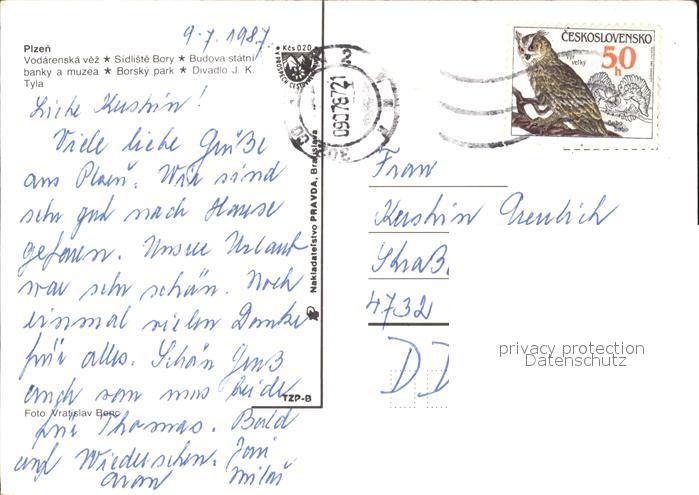 9.7.1987
Plzeň
Vodárenská věž ★ Sídliště Bory ★ Budova státní
banky a muzea ★ Borský park ★ Divadlo J. K.
Tyla
Liebe Kerstin!
Viele liebe Grüße
aus Plzeň. Wir sind
sehr gut nach Hause
gefaren. Unsere Urlaub
war sehr schön. Noch
einmal vielen Danke
für alles. Schön Gruß
auch von uns beide
für Thomas. Bald
auf Wiedersehen. Joni
Miloš
Foto Vratislav Benc
Kčs 0,20
Nakladatelstvo PRAVDA, Bratislava
TZP-B
090787-21
ČESKOSLOVENSKO
50
h
Výr
velký
Bubo
bubo
Frau
Kerstin
Straß
4732
DD
privacy protection
Datenschutz